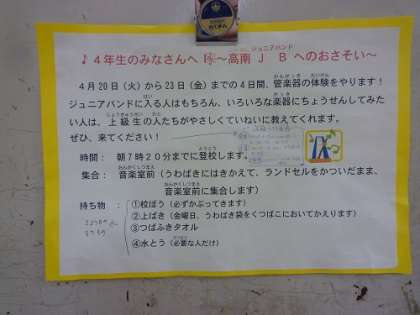 ♪４年生のみなさんへ ～高南ＪＢへのおさそい～
４月２０日（火）から２３日（金）までの４日間、管楽器の体験をやります！
ジュニアバンドに入る人はもちろん、いろいろな楽器にちょうせんしてみた
い人は、上級生の人たちがやさしくていねいに教えてくれます。
ぜひ、来てください！
時間： 朝７時２０分までに登校します。
集合： 音楽室前（うわばきにはきかえて、ランドセルをかついだまま、
音楽室前に集合します）
持ち物： ①校ぼう（必ずかぶってきます）
②上ばき（金曜日、うわばき袋をくつばこにおいてかえります）
③つばふきタオル
④水とう（必要な人だけ）